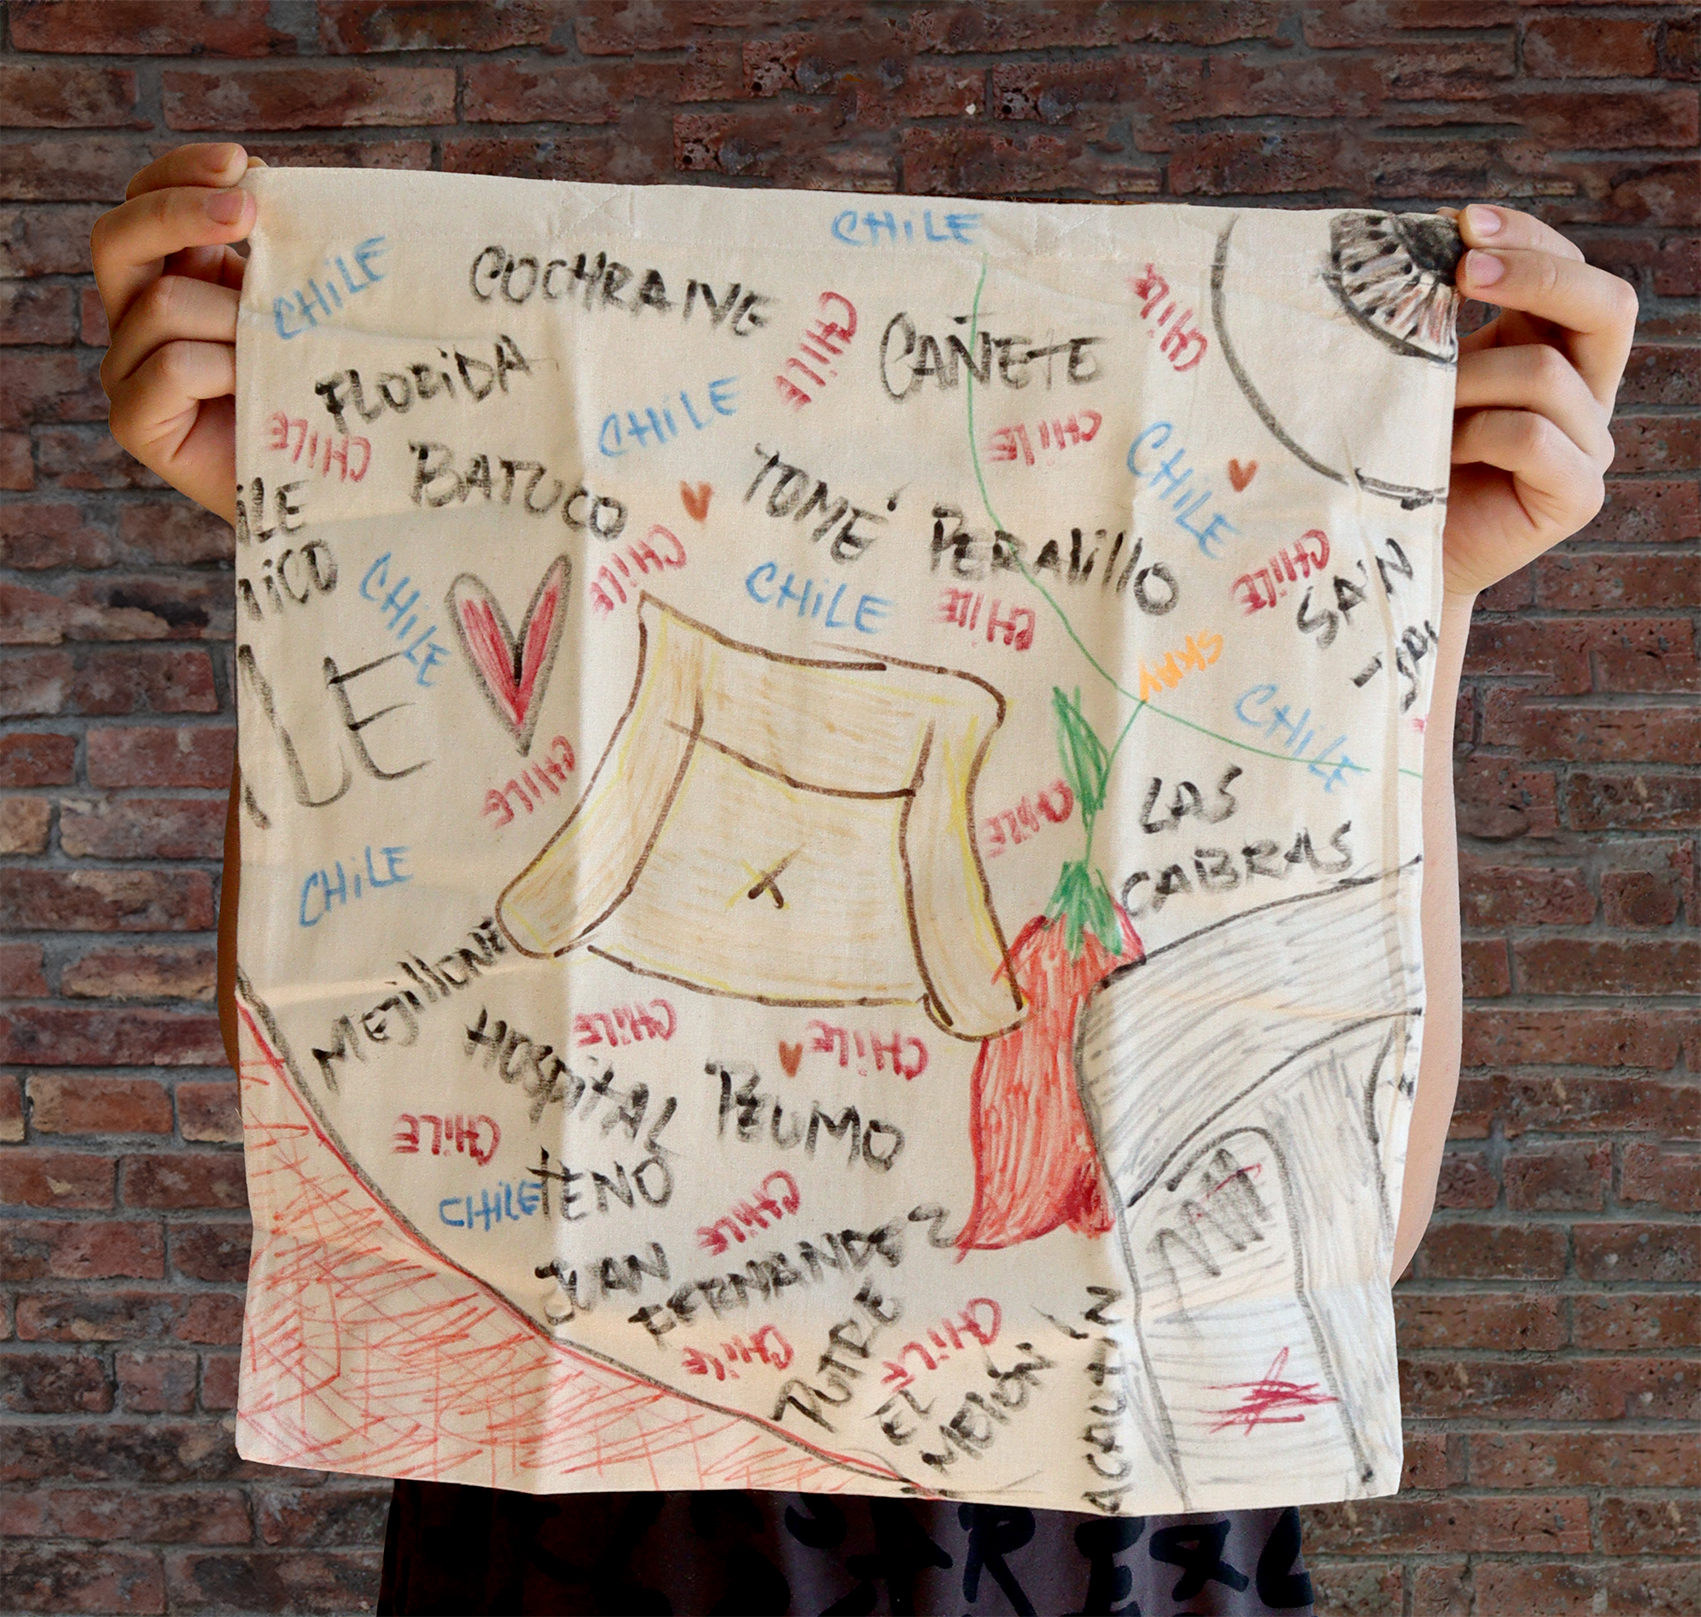 CHILE
CHILE
COCHRANE
CHILE
CHILE
CAÑETE
FLORIDA
CHILE
CHILE
CHILE
CHILE
BATUCO
TOMÉ
PERALILLO
CHILE
CHILE
CHILE
CHILE
CHILE
CHILE
SAN
LE
SKAY
CHILE
CHILE
CHILE
LAS
CABRAS
CHILE
MEJILLONE
HOSPITAL
CHILE
CHILE
PEUMO
CHILE
CHILE
TENO
CHILE
JUAN
FERNANDEZ
PUTRE
CHILE
CHILE
EL
MELÓN